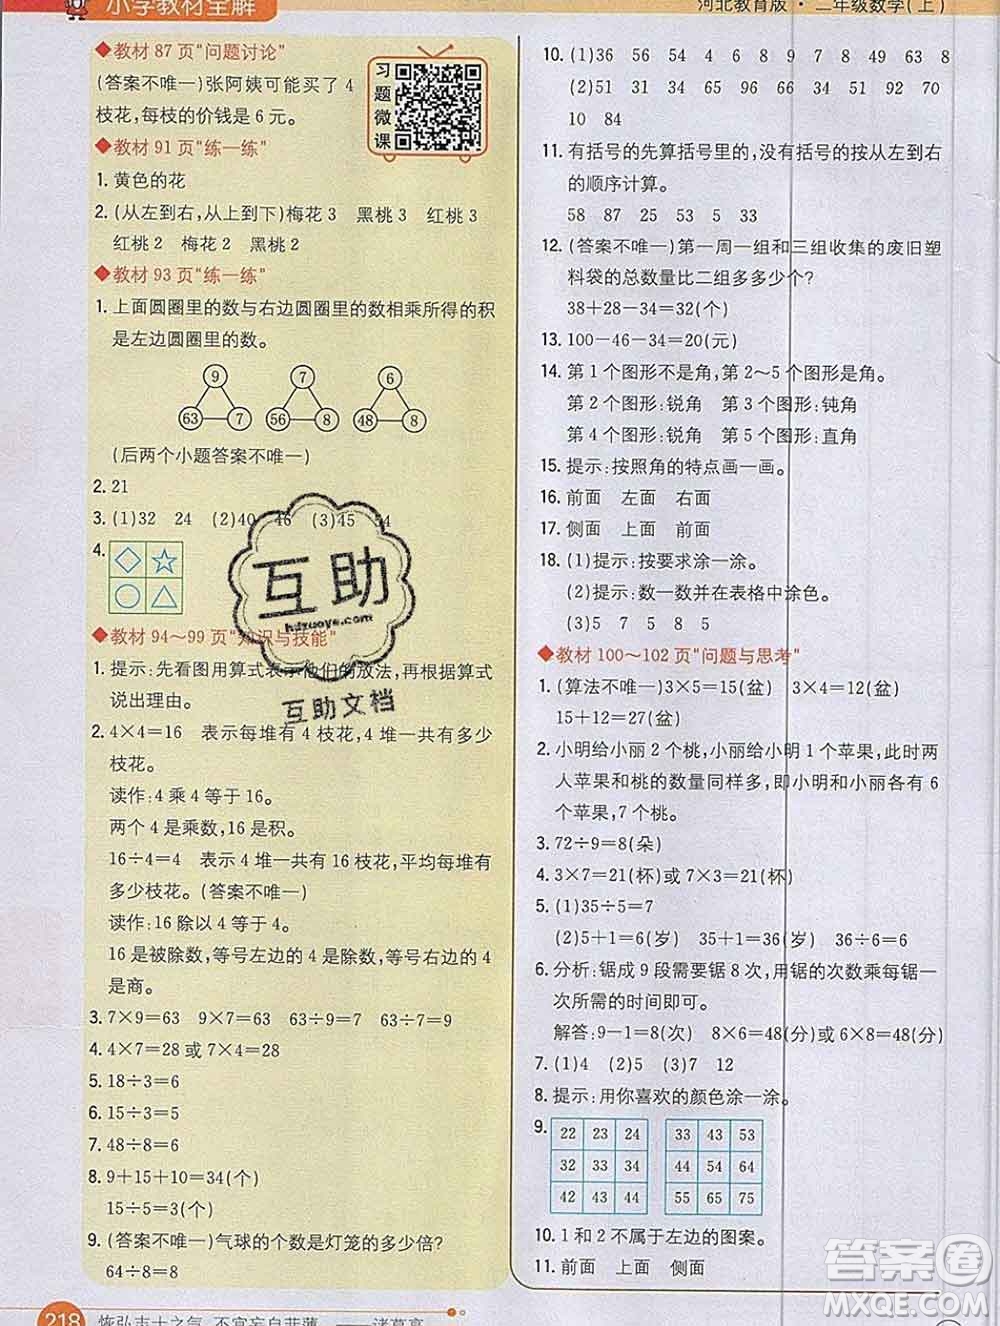 小学教材全解
河北教育版·二年级数学(上)
◆教材 87 页“问题讨论”
(答案不唯一)张阿姨可能买了 4
枝花,每枝的价钱是 6 元。
习题微课
◆教材 91 页“练一练”
1. 黄色的花
2. (从左到右,从上到下)梅花 3　黑桃 3　红桃 3
红桃 2　梅花 2　黑桃 2
◆教材 93 页“练一练”
1. 上面圆圈里的数与右边圆圈里的数相乘所得的积
是左边圆圈里的数。
9　7　6
63　7　56　8　48　8
(后两个小题答案不唯一)
2. 21
3. (1)32　24　(2)40　46　(3)45　54
4.
◆教材 94～99 页“知识与技能”
1. 提示:先看图用算式表示他们的放法,再根据算式
说出理由。
2. 4×4=16　表示每堆有 4 枝花,4 堆一共有多少
枝花。
读作:4 乘 4 等于 16。
两个 4 是乘数,16 是积。
16÷4=4　表示 4 堆一共有 16 枝花,平均每堆有
多少枝花。(答案不唯一)
读作:16 除以 4 等于 4。
16 是被除数,等号左边的 4 是除数,等号右边的 4
是商。
3. 7×9=63　9×7=63　63÷9=7　63÷7=9
4. 4×7=28 或 7×4=28
5. 18÷3=6
6. 15÷3=5
7. 48÷8=6
8. 9+15+10=34(个)
15÷5=3(个)
9. (答案不唯一)气球的个数是灯笼的多少倍?
64÷8=8
10. (1)36　56　54　4　8　9　49　36　63　8
(2)51　31　24　97　7　24　92　70
10　84
11. 有括号的先算括号里的,没有括号的按从左到右
的顺序计算。
58　87　25　53　7　9
12. (答案不唯一)第一周一组和三组收集的废旧塑
料袋的总数量比二组多多少个?
38+28-34=32(个)
13. 100-46-34=20(元)
14. 第 1 个图形不是角,第 2～5 个图形是角。
第 2 个图形:锐角　第 3 个图形:钝角
第 4 个图形:锐角　第 5 个图形:直角
15. 提示:按照角的特点画一画。
16. 前面　左面　右面
17. 侧面　上面　前面
18. (1)提示:按要求涂一涂。
(2)提示:数一数并在表格中涂色。
(3)5　7　5　8　5
◆教材 100～102 页“问题与思考”
1. (算法不唯一)3×5=15(盆)　3×4=12(盆)
15+12=27(盆)
2. 小明给小丽 2 个桃,小丽给小明 1 个苹果,此时两
人苹果和桃的数量同样多,即小明和小丽各有 6
个苹果,7 个桃。
3. 72÷9=8(朵)
4. 3×7=21(杯)或 7×3=21(杯)
5. (1)35÷5=7
(2)5+1=6(岁)　35+1=36(岁)　36÷6=6
6. 分析:锯成 9 段需要锯 8 次,用锯的次数乘每锯一
次所需的时间即可。
解答:9-1=8(次)　8×6=48(分)或 6×8=48(分)
7. (1)4　(2)5　(3)7　12
8. 提示:用你喜欢的颜色涂一涂。
9.
22　23　24　33　43　53
32　33　34　54　64　74
42　43　44　55　65　75
10. 1 和 2 不属于左边的图案。
11. 前面　上面　侧面
互助
hdzuoye.com
互助文档
答案圈
MXQE.COM
218　恢弘志士之气,不宜妄自菲薄。——诸葛亮